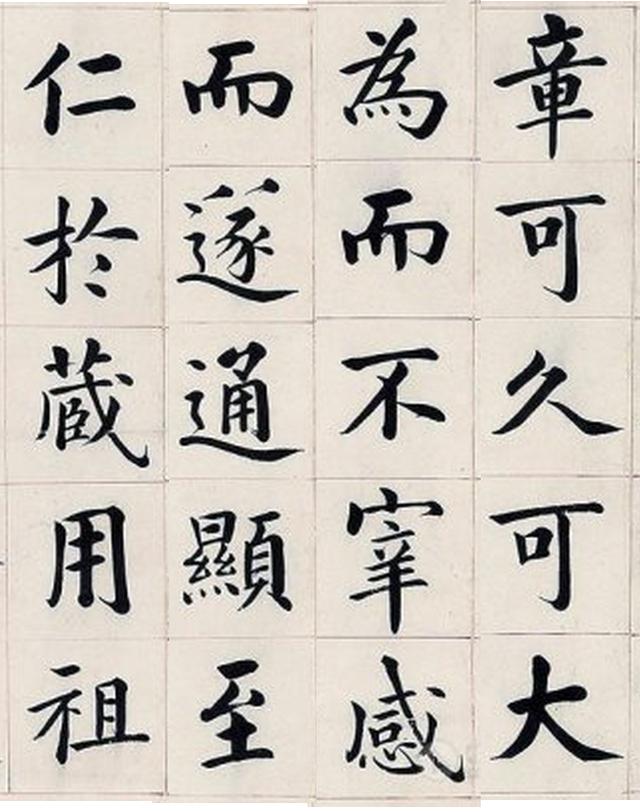 章可久可大
為而不宰感
而遂通顯至
仁於蔵用祖